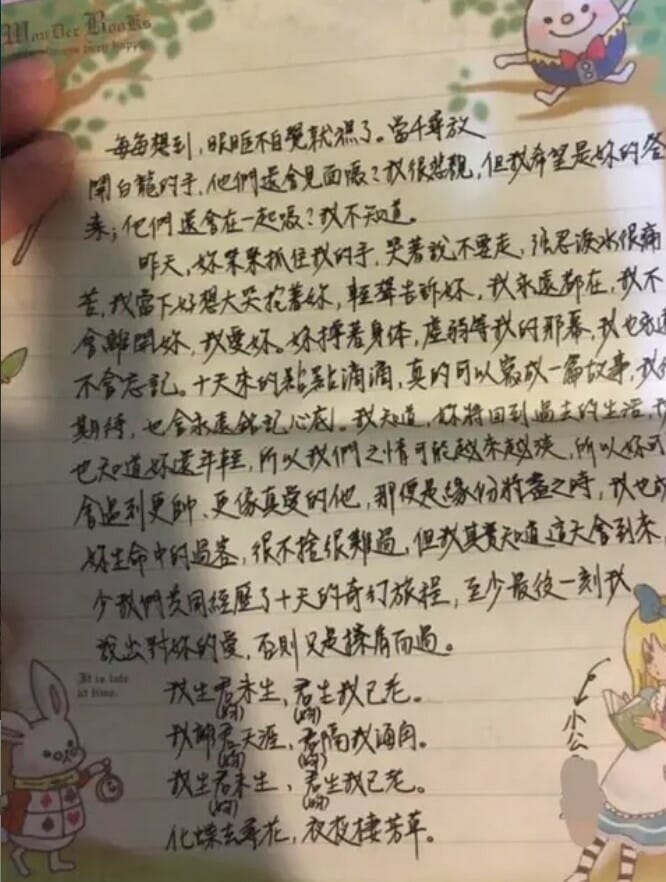 WonDer BooKs
每每想到，眼眶不自覺就濕了。當千尋放
開白龍的手，他們還會見面嗎？我很悲觀，但我希望是妳的答
案；他們還會在一起嗎？我不知道。
昨天，妳緊緊抓住我的手，哭著說不要走，強忍淚水很痛
苦，我當下好想大哭抱著妳，輕聲告訴妳，我永遠都在，我不
會離開妳，我愛妳。妳撐著身体，虛弱等我的那幕，我也永遠
不會忘記。十天來的點點滴滴，真的可以寫成一篇故事，我很
期待，也會永遠銘記心底。我知道，妳將回到過去的生活，我
也知道妳還年輕，所以我們之情可能越來越淡，所以妳可
會遇到更帥、更像真愛的他，那便是緣份將盡之時，我也成
妳生命中的過客，很不捨很難過，但我其實知道這天會到來，
少我們共同經歷了十天的奇幻旅程，至少最後一刻我
說出對妳的愛，否則又是擦肩而過。
It is late
at time.
我生君未生，君生我已老。
(妳) (妳)
我離君天涯，君隔我海角。
(妳) (妳)
我生君未生，君生我已老。
(妳) (妳)
化蝶去尋花，夜夜棲芳草。
小公